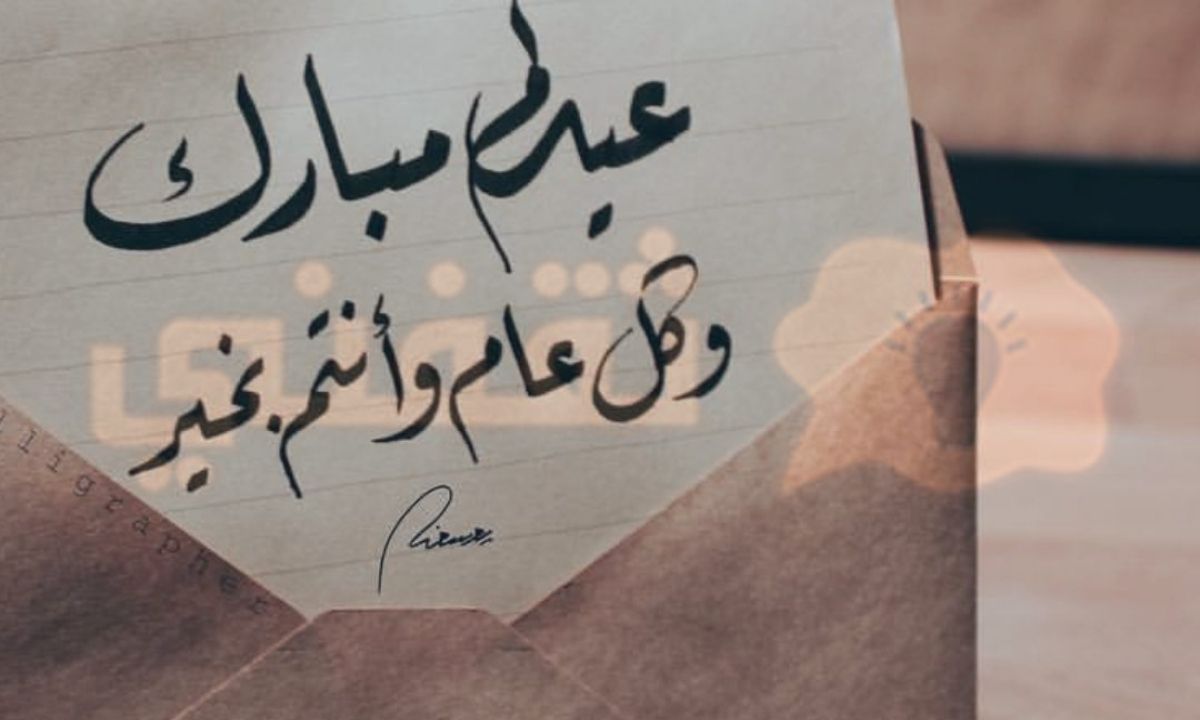 عيدكم مبارك
وكل عام وأنتم بخير
ثقفني
lligrapher